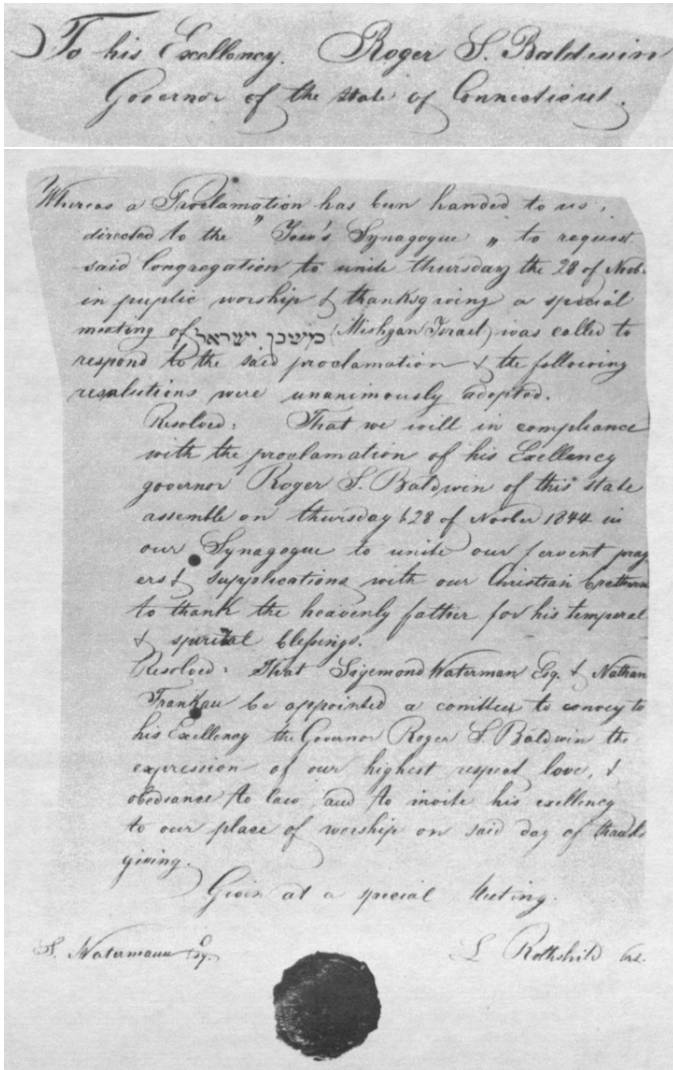 To his Excellency. Roger S. Baldwin
Governor of the state of Connecticut.
Whereas a Proclamation has been handed to us,
directed to the "Jew's Synagogue" to request
said Congregation to unite thursday the 28 of Novb.
in puplic worship & thanksgiving a special
meeting of משכן ישראל (Mishgan Israel) was called to
respond to the said proclamation & the following
resolutions were unanimously adopted.
Resolved: That we will in compliance
with the proclamation of his Exellency
governor Roger S. Baldwin of this state
assemble on thursday 28 of Novber 1844 in
our Synagogue to unite our fervent pray
ers & supplications with our Christian brethren
to thank the heavenly father for his temporal
& spirital blessings.
Resolved: That Sigemond Waterman Esq. & Nathan
Frankau be appointed a comitteee to convey to
his Exellency the Governor Roger S. Baldwin the
expression of our highest respect love, &
obedsance to law, and to invite his exellency
to our place of worship on said day of thanks
giving.
Given at a special Meeting.
S. Watermann Esq. L Rothshild